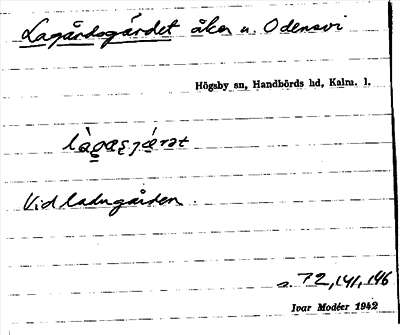 Lagårdsgärdet åker u. Odensvi
Högsby sn, Handbörds hd, Kalm. l.
Vid ladugården.
s. 72, 141, 146
Ivar Modéer 1942